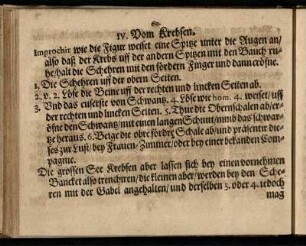 IV. Vom Krebsen.
Improchir wie die Figur weiset eine Spitze unter die Augen an/
also daß der Krebs uff der andern Spitzen mit den Bauch ru-
he/halt die Schehren mit den fördern Finger und dann eröfne.
1. Die Schehren uff der obern Seiten.
2. v. 2. Löse die Beine uff der rechten und lincken Seiten ab.
3. Vnd das euserste von Schwantz. 4. Löse wie hom. 4. weiset/ uff
der rechten und lincken Seiten. 5. Thue die Oberschalen ab/er-
öfne den Schwantz/mit einen langen Schnitt/nimb das schwar-
tze heraus. 6. Beige die obre förder Schale ab/und præsentir die-
ses zur Lust/ bey Frauen-Zimmer/oder bey einer bekanden Com-
pagnie.
Die grossen See Krebsen aber lassen sich bey einen vornehmen
Bancket also trenchiren/die kleinen aber/werden bey den Sche-
ren mit der Gabel angehalten/ und derselben 3. oder 4. iedoch
mag